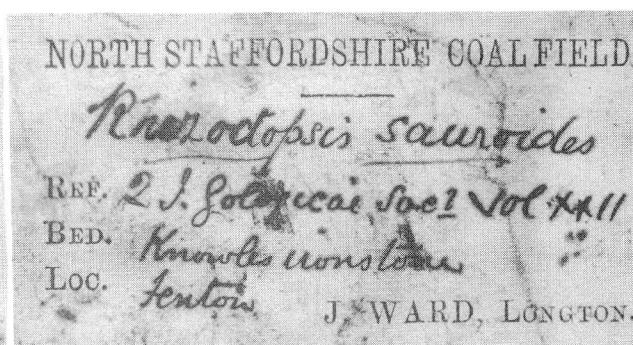 NORTH STAFFORDSHIRE COALFIELD.
Rhizodopsis sauroides
REF. Q J. Geological Soc! Vol XXII
BED. Knowles ironstone "
LOC. Fenton
J. WARD, LONGTON.